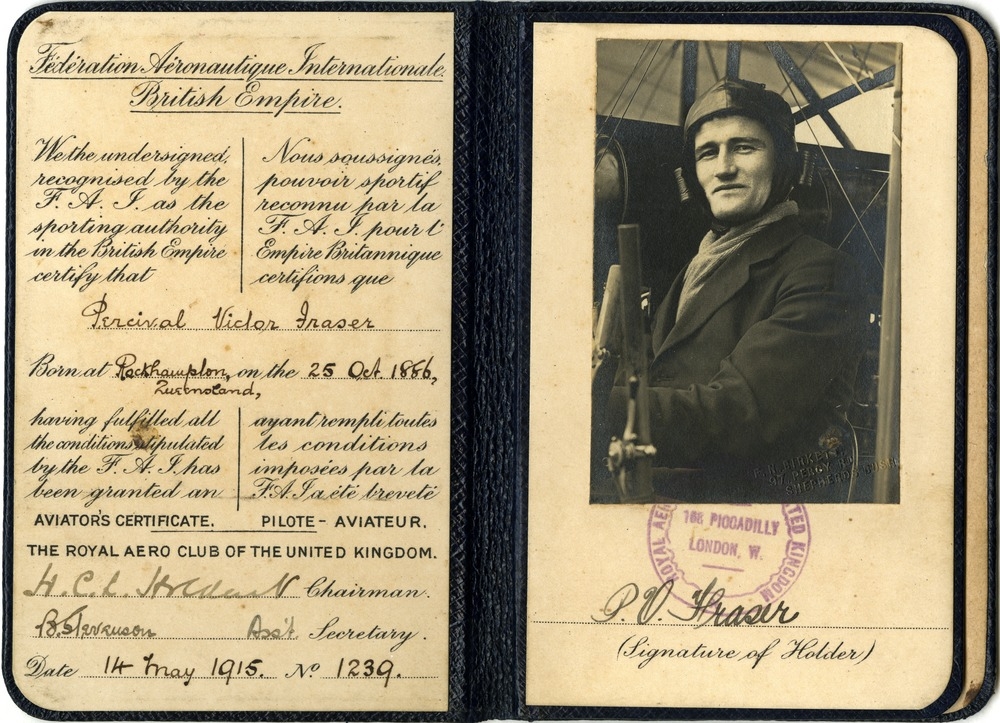 Fédération Aéronautique Internationale
British Empire.
We the undersigned,
recognised by the
F. A. I. as the
sporting authority
in the British Empire
certify that
Nous soussignés,
pouvoir sportif
reconnu par la
F. A. I. pour l'
Empire Britannique
certifions que
Percival Victor Fraser
Born at Rockhampton, on the 25 Oct 1886,
Queensland,
having fulfilled all
the conditions stipulated
by the F. A. I. has
been granted an
ayant rempli toutes
les conditions
imposées par la
F.A.I a été breveté
AVIATOR'S CERTIFICATE. PILOTE-AVIATEUR.
THE ROYAL AERO CLUB OF THE UNITED KINGDOM.
H. C. L. Chairman.
B. Stevenson Ass't. Secretary.
Date 14 May 1915. No 1239.
ROYAL AER
TED KINGDOM
166 PICCADILLY
LONDON, W.
P. V. Fraser
(Signature of Holder)